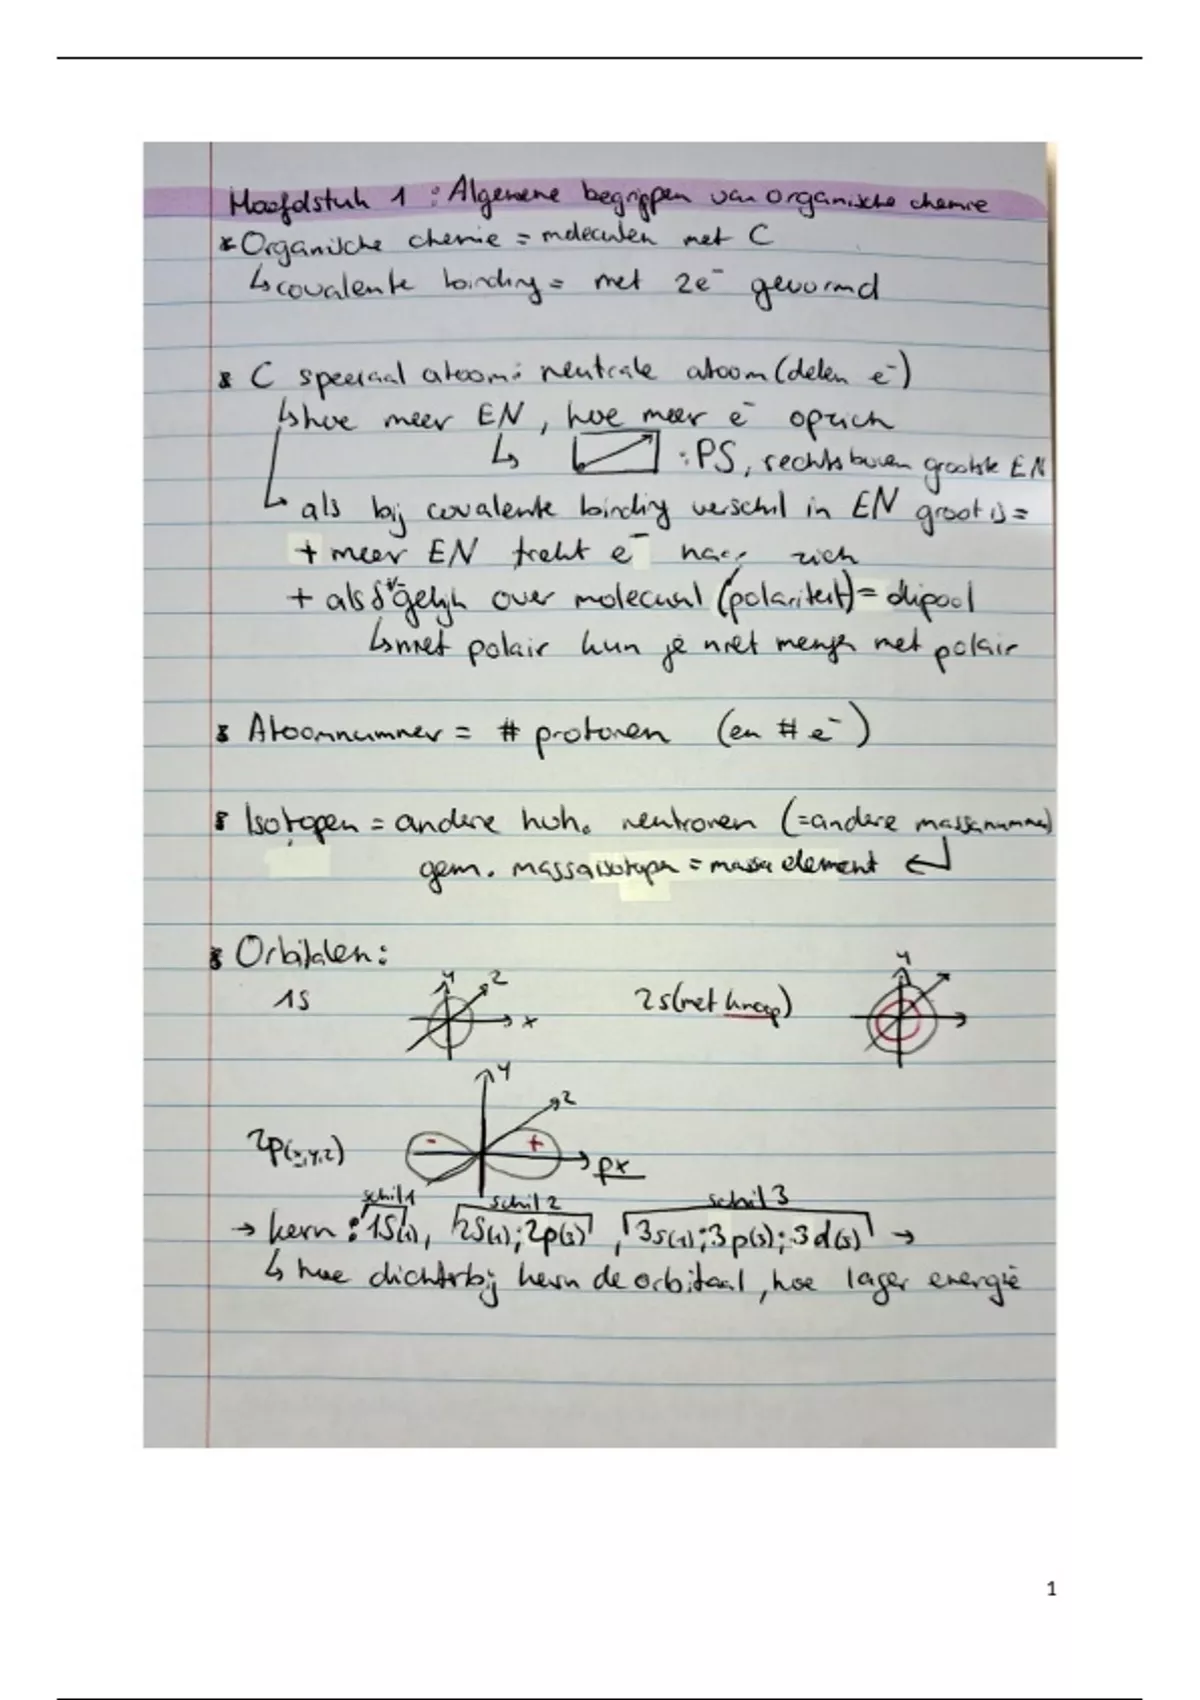 Hoofdstuk 1 : Algemene begrippen van organische chemie
* Organische chemie = moleculen met C
↳ covalente binding = met 2e⁻ gevormd
* C speciaal atoom: neutrale atoom (delen e⁻)
↳ hoe meer EN, hoe meer e⁻ op zich
↳ : PS, rechtsboven grootste EN
↳ als bij covalente binding verschil in EN groot is =
+ meer EN trekt e⁻ naar zich
+ als δ⁺/⁻ gelijk over molecuul (polariteit) = dipool
↳ niet polair kun je niet mengen met polair
* Atoomnummer = # protonen (en # e⁻)
* Isotopen = andere hvh. neutronen (= andere massanummer)
gem. massa isotopen = massa element ↵
* Orbitalen:
1s y z x 2s (met knoop) y
y z
2p(x,y,z) - + px
schil 1 schil 2 schil 3
→ kern : 1s(1), 2s(1); 2p(3), 3s(1); 3p(3); 3d(5) →
↳ hoe dichterbij kern de orbitaal, hoe lager energie
1